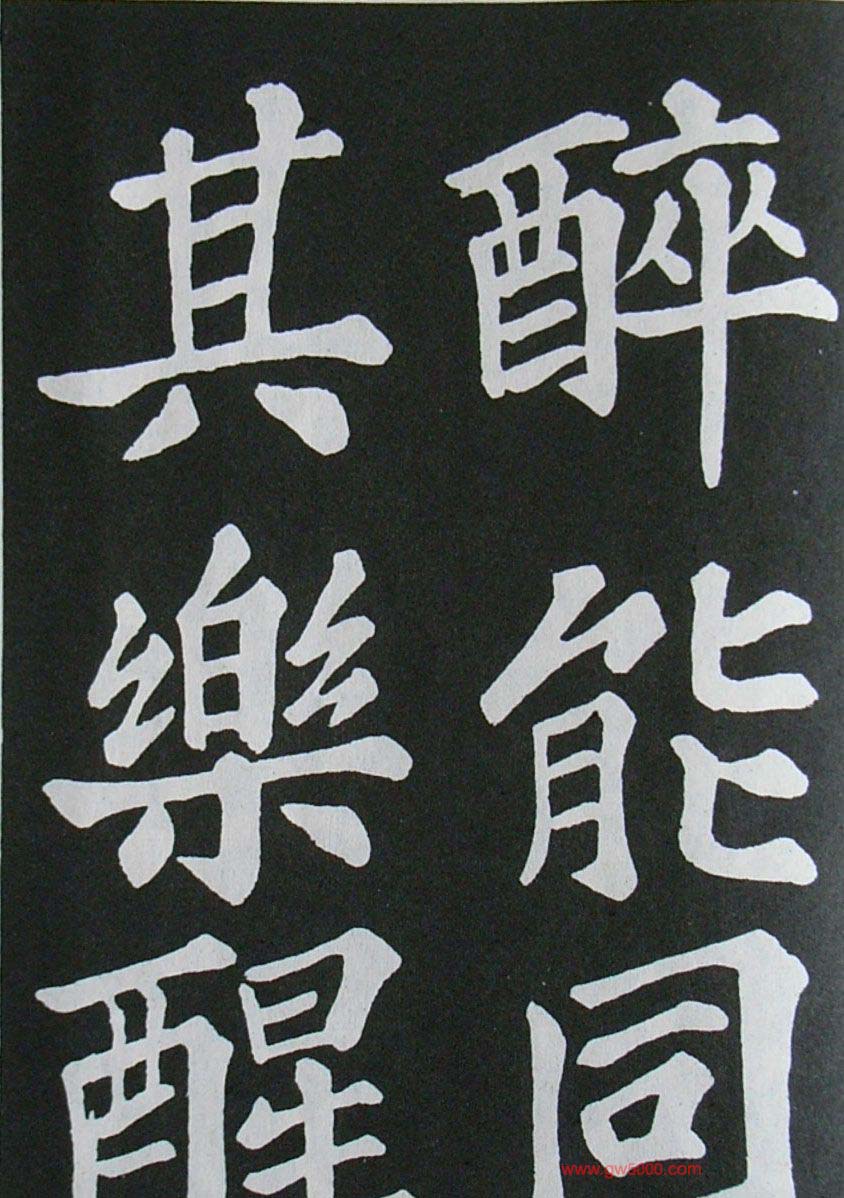 醉能同
其樂醒
www.gw5000.com